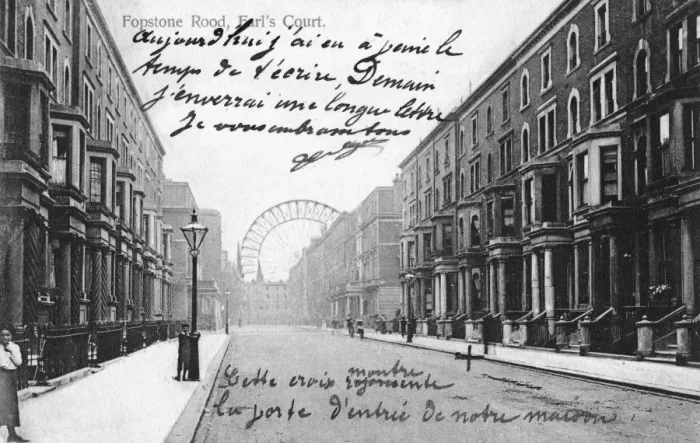 Fopstone Rood, Earl's Court.
Aujourd'hui j'ai eu à peine le
temps de t'écrire, Demain
j'enverrai une longue lettre
Je vous embrasse tous
Cette croix montre
représente
la porte d'entrée de notre maison